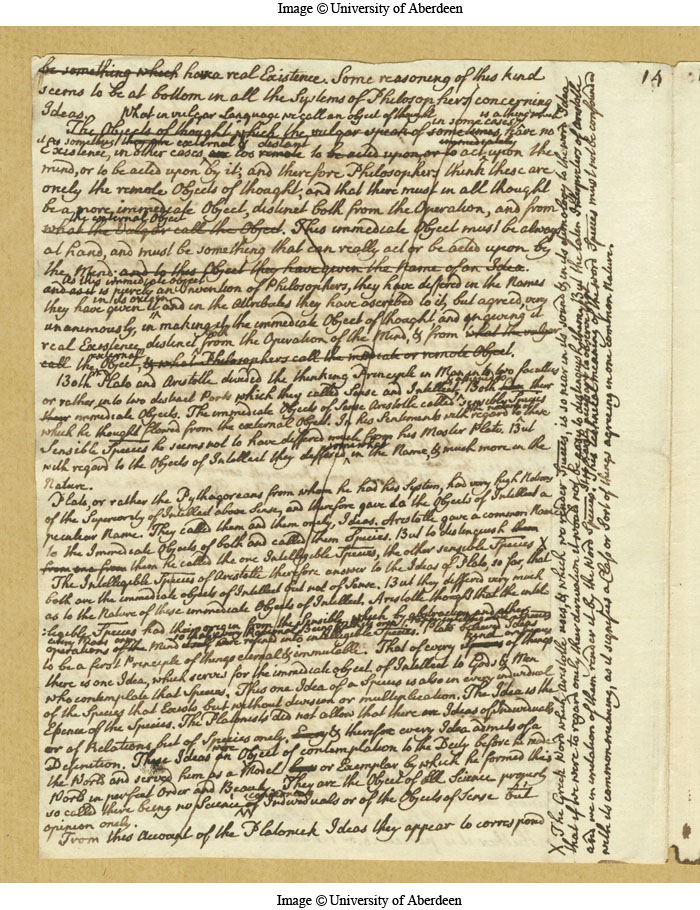 Image © University of Aberdeen
14
be something which have a real Existence. Some reasoning of this kind
seems to be at bottom in all the Systems of Philosophers concerning
Ideas. What in vulgar Language we call an object of thought is a
The Objects of thought which the vulgar speak of sometimes, in some cases have no
it is something external or distant immediately
Existence, in other cases, are too remote to be acted upon or to act upon the
mind, or to be acted upon by it; and therefore Philosophers think these are
onely the remote Objects of thought, and that there must in all thought
be a more immediate Object, distinct both from the Operation, and from
the external object
what the Vulgar call the Object. This immediate Object must be always
at hand, and must be something that can really act or be acted upon by
the Mind. and to this Object they have given the Name of an Idea.
As this immediate object
and as it is purely an Invention of Philosophers, they have differed in the Names
in its origin
they have given it and in the Attributes they have ascribed to it, but agreed, very
unanimously, in making it the immediate Object of thought and in giving it
both
real Existence, distinct from the Operation of the Mind, & from what the vulgar
external
call the Object, & what Philosophers call the mediate or remote Object.
Both Plato and Aristotle divided the thinking Principle in Man into two faculties
or rather into two distinct Parts which they called Sense and Intellect. Both
their immediate Objects. The immediate Objects of Sense Aristotle called sensible species
which he thought flowed from the external Object. In his Sentiments with regard to these
Sensible Species he seems not to have differed much from his Master Plato. But
somewhat
with regard to the Objects of Intellect they differed in the Name, & much more in the
Nature.
Plato, or rather the Pythagoreans from whom he had his System, had very high Notions
of the Superiority of Intellect above Sense, and therefore gave to the Objects of Intellect a
peculiar Name. They called them and them onely, Ideas. Aristotle gave a common Name
to the Immediate Objects of both and called them Species. But to distinguish them
from one from them he called the one Intelligible Species, the other sensible Species X
The Intelligible Species of Aristotle therefore answer to the Ideas of Plato, so far, that
both are the immediate objects of Intellect but not of Sense. But they differd very much
as to the Nature of these immediate Objects of Intellect. Aristotle thought that the intel
ligibly Species had their origin from the Sensible which by abstraction and other
operations of the Mind
Plato Ideas
kind or species
to be a first Principle of things eternal & immutable. That of every species of things
there is one Idea, which serves for the immediate object of Intellect to Gods & Men
who contemplate that Species. This one Idea of a Species is also in every individual
of the Species that Exists but without division or multiplication. The Idea is the
Essence of the Species. The Platonists did not allow that there are Ideas of Individuals
or of Relations, but of Species onely. Every & therefore every Idea admits of a
Definition. These Ideas were an Object of contemplation to the Deity before he made
the World and served him as a Model or Exemplar by which he formed this
World in perfect Order and Beauty. They are the Object of all Science properly
concerning
so called there being no Science of Individuals or of the Objects of Sense but
opinion onely.
From this Account of the Platonick Ideas they appear to correspond
X The Greek Word which Aristotle uses, & which we render Species, is so near in its sound & in its etymology to the word Idea
that if we were to regard only their derivation it would not be easy to distinguish them. But the Latin Interpreters of Aristotle
and we in imitation of them render it by the Word Species. This technical meaning of the word Species must not be confounded
with its common meaning, as it signifies a Class or Sort of things agreeing in one common Nature.
Image © University of Aberdeen